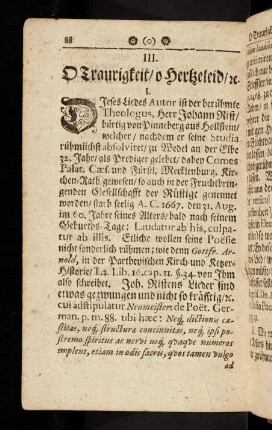 88 (o)
III.
O Traurigkeit/ o Hertzeleid/ ꝛc.
I.
DIeses Liedes Autor ist der berühmte
Theologus, Herr Johann Rist/
bürtig von Pinneberg aus Hollstein/
welcher / nachdem er seine Studia
rühmlichst absolviret/ zu Wedel an der Elbe
32. Jahr/ als Prediger gelebet/ dabey Comes
Palat. Cæs. und Fürstl. Mecklenburg. Kir-
chen-Rath gewesen/ so auch in der Fruchtbrin-
genden Gesellschafft der Rüstige genennet
worden/ starb seelig A. C. 1667. den 31. Aug.
im 60. Jahre seines Alters/ bald nach seinem
Geburths-Tage: Laudatur ab his, culpa-
tur ab illis. Etliche wollen seine Poesie
nicht sonderlich rühmen; wie denn Gottfr. Ar-
nold, in der Partheyischen Kirch-und Ketzer-
Historie/ T.2. Lib. 16. cap. 11. §.34. von ihm
also schreibet. Joh. Ristens Lieder sind
etwas gezwungen und nicht so kräfftig/ ꝛc.
cui adstipulatur Neumeister de Poët. Ger-
man. p. m. 88. ubi hæc: Neq́; dictionis ca-
stitas, neq́; structuræ concinnitas, neq́; ipsi po-
stremo spiritus ac nervi usq́; quaque numeros
implent, etiam in odis sacris, quos tamen vulgo
ad